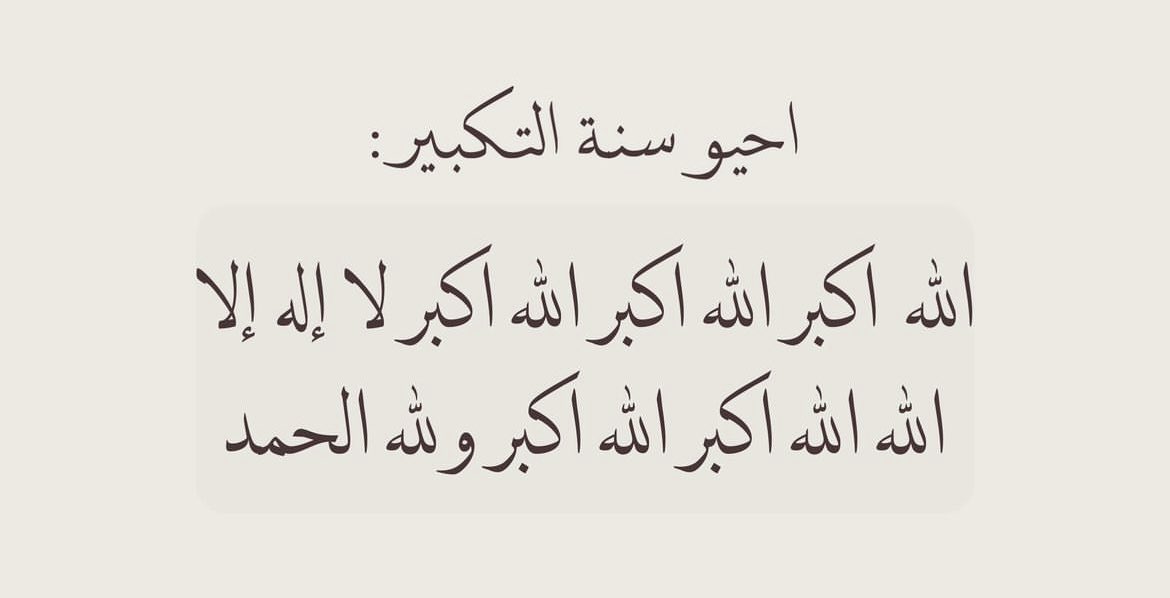 احيو سنة التكبير:
الله اكبر الله اكبر الله اكبر لا إله إلا
الله الله اكبر الله اكبر ولله الحمد